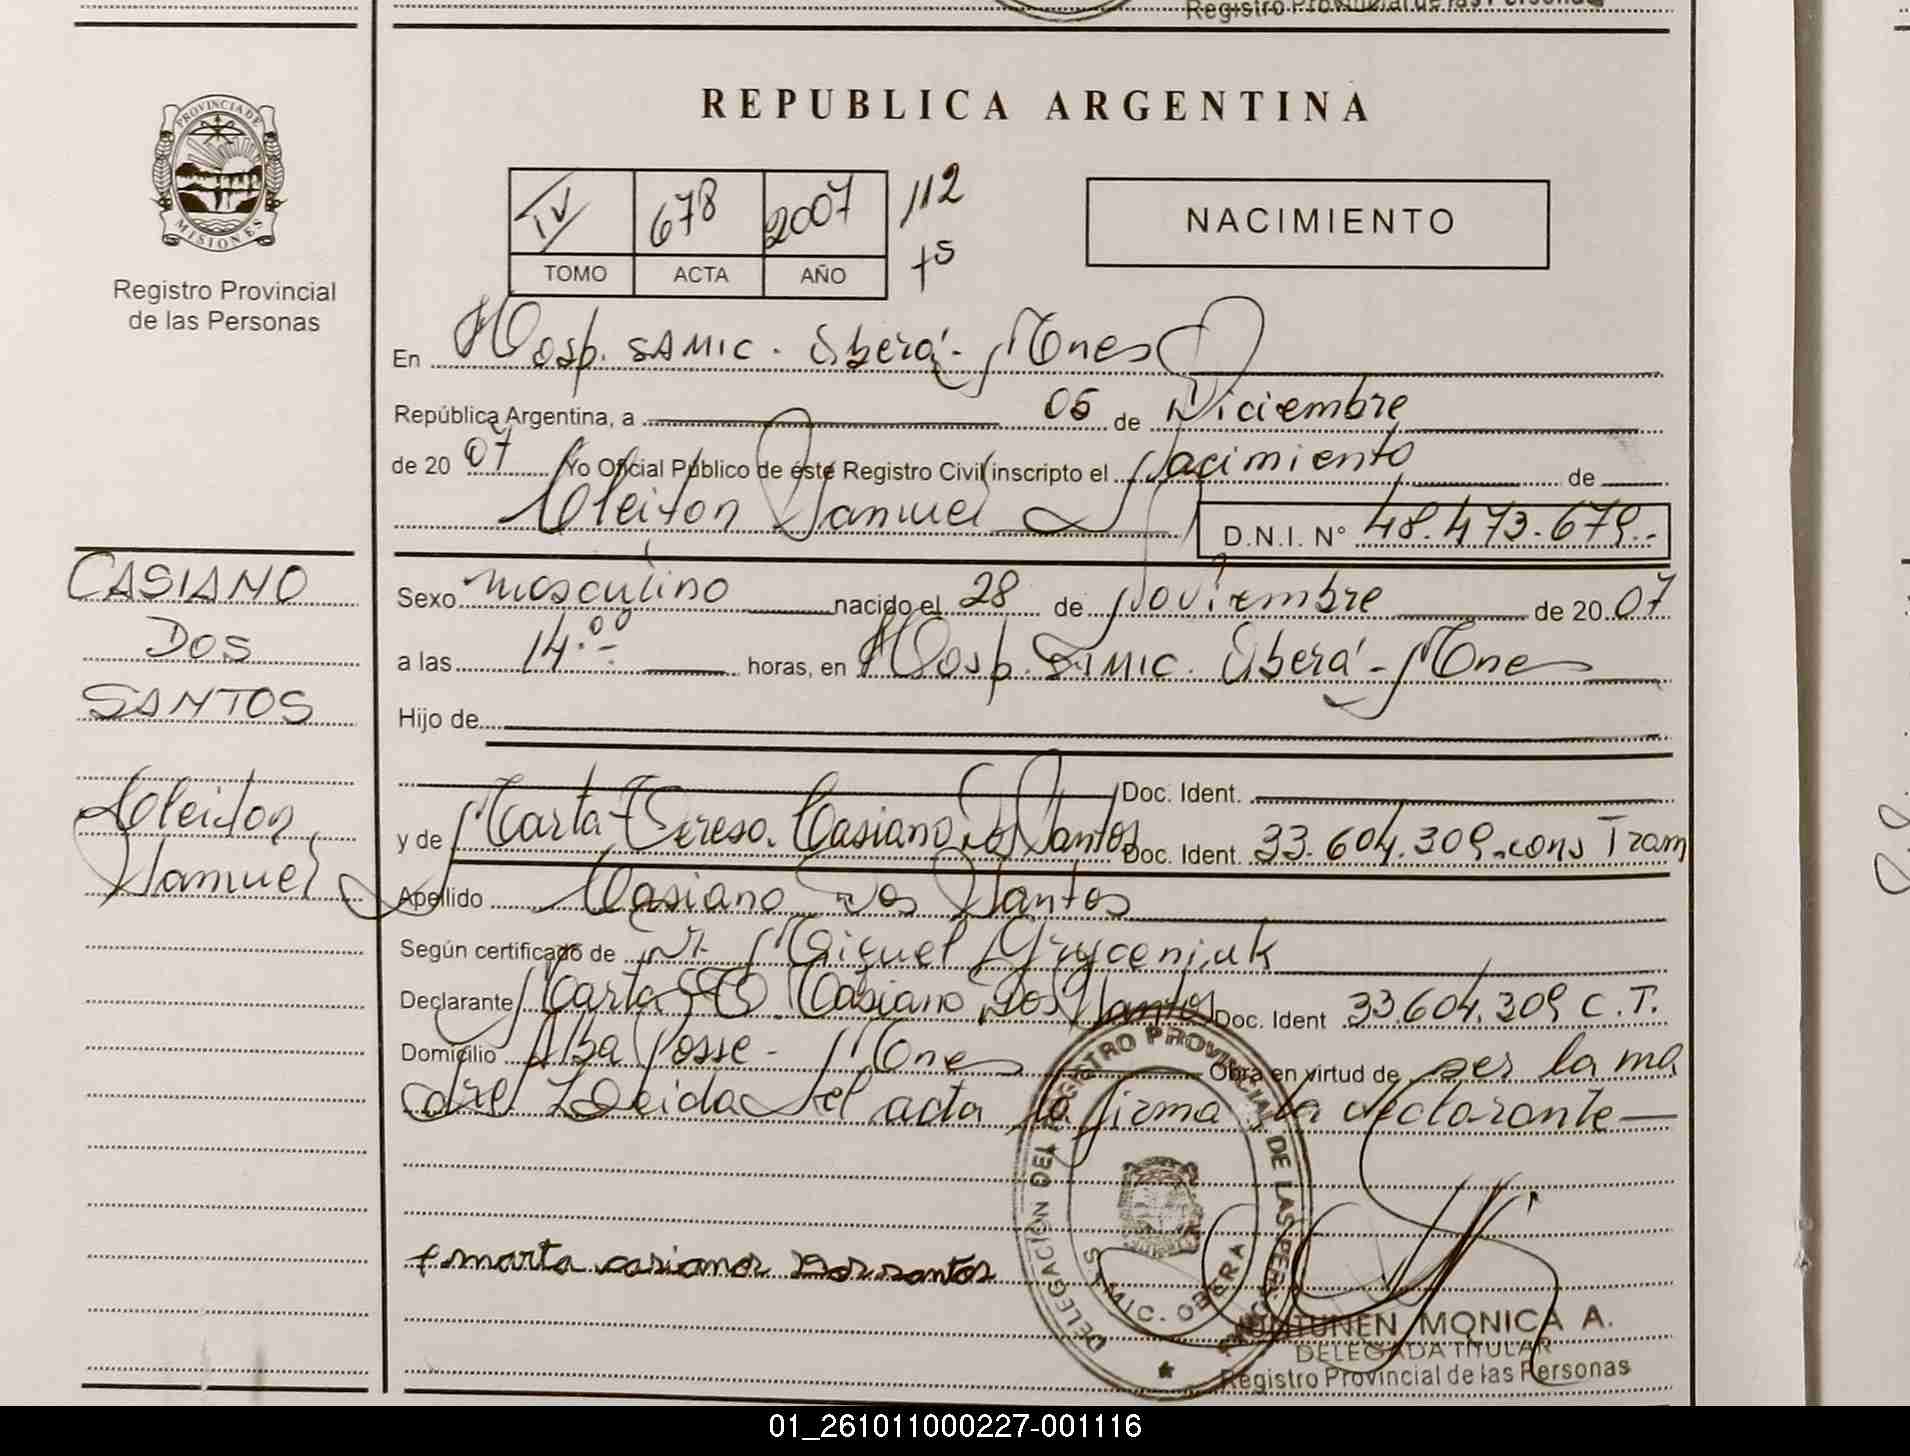 Registro Provincial de las Personas
REPUBLICA ARGENTINA
PROVINCIA DE
MISIONES
Registro Provincial
de las Personas
IV 678 2007 112
TOMO ACTA AÑO
NACIMIENTO
En Hosp. SAMIC. Oberá - Mnes
República Argentina, a 06 de Diciembre
de 20 07 Yo Oficial Público de éste Registro Civil inscripto el Nacimiento de
Cleiton Samuel D.N.I. N° 48.473.679.-
CASIANO
DOS
SANTOS
Cleiton
Samuel
Sexo masculino nacido el 28 de Noviembre de 20 07
a las 14.00 horas, en Hosp. SAMIC. Oberá - Mnes
Hijo de
Doc. Ident.
y de Marta Teresa Casiano Dos Santos Doc. Ident. 33.604.309.cons Tram
Apellido Casiano Dos Santos
Según certificado de Dr. Miguel Gryceniuk
Declarante Marta T. Casiano Dos Santos Doc. Ident 33.604.309 C.T.
Domicilio Alba Posse - Mnes Obra en virtud de ser la ma
dre Leida el acta la firma la declarante
marta casiano Dos santos
DELEGACIÓN DEL REGISTRO PROVINCIAL DE LAS PERSONAS
SAMIC. OBERA
MONICA A.
DELEGADA TITULAR
Registro Provincial de las Personas
01_261011000227-001116